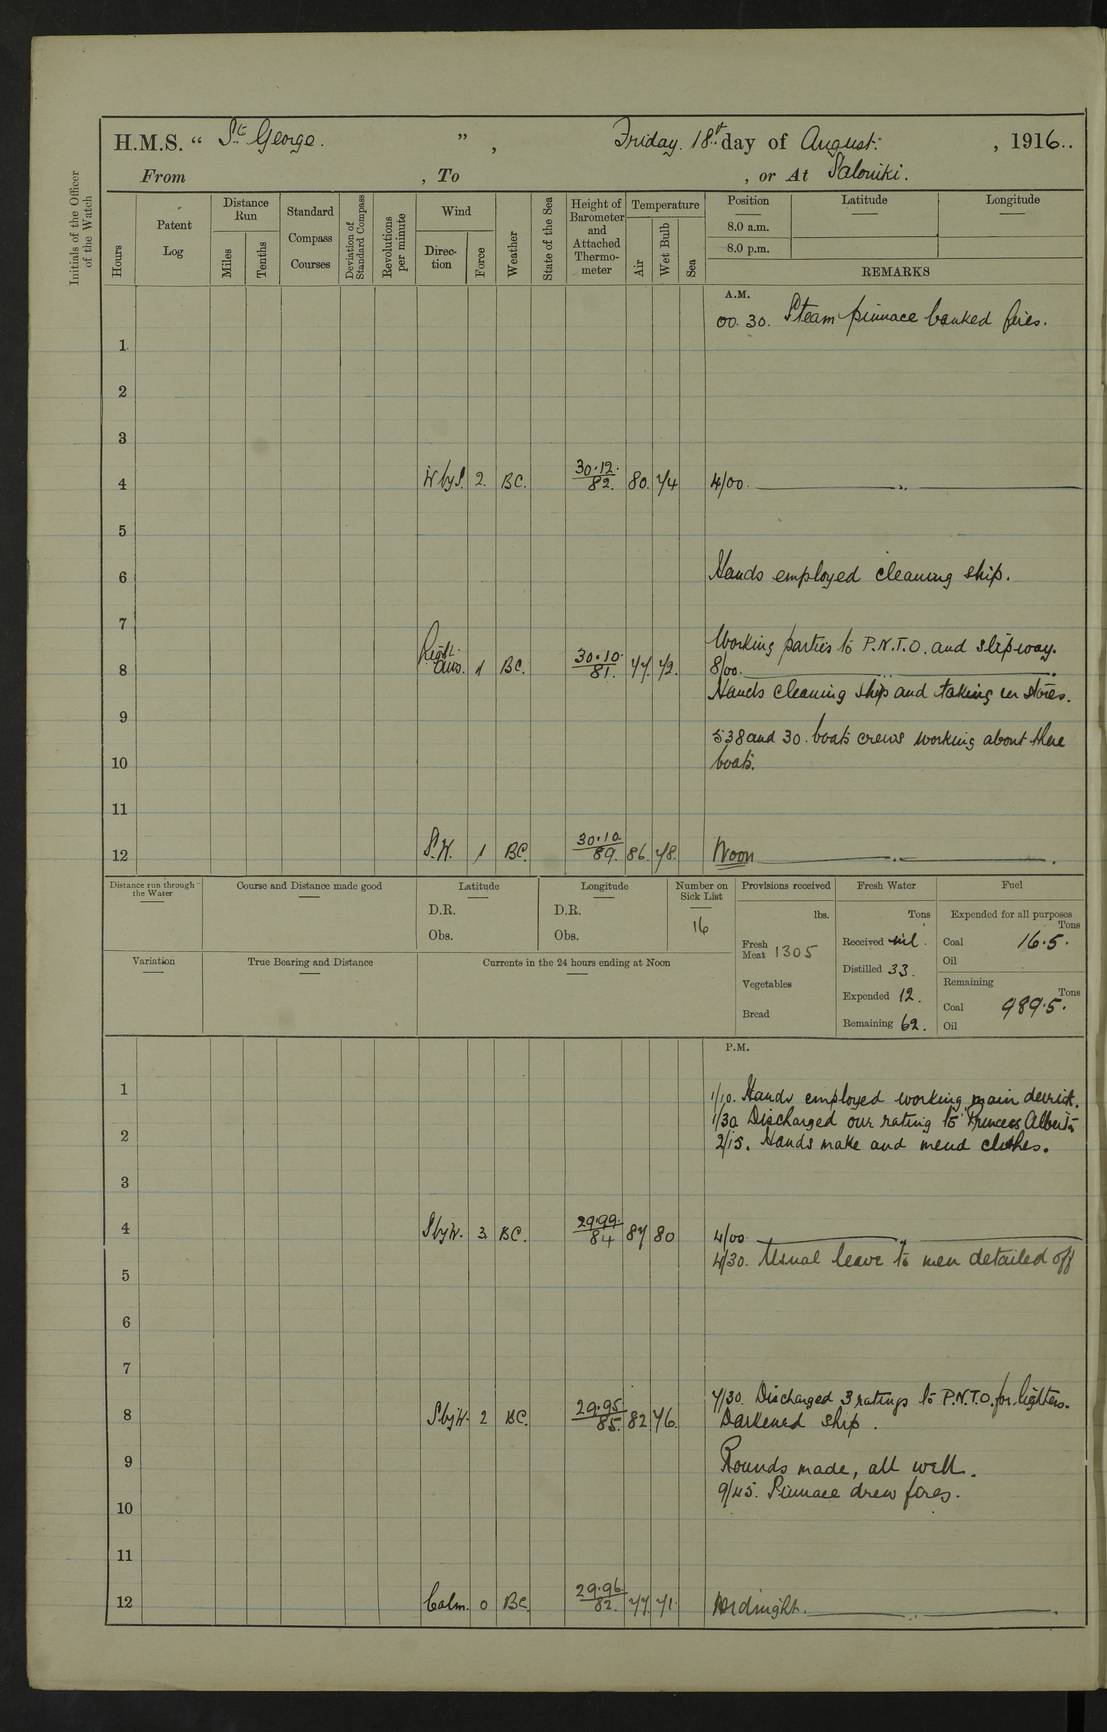 H.M.S. “ St. George. ” , Friday. 18th day of August. , 1916..
From , To , or At Saloniki.
Initials of the Officer of the Watch
Hours
Patent Log
Distance Run
Miles
Tenths
Standard Compass Courses
Deviation of Standard Compass
Revolutions per minute
Wind
Direction
Force
Weather
State of the Sea
Height of Barometer and Attached Thermometer
Temperature
Air
Wet Bulb
Sea
Position Latitude Longitude
8.0 a.m.
8.0 p.m.
REMARKS
A.M.
00.30. Steam pinnace banked fires.
1
2
3
4 W by S. 2. BC. 30.12. 82. 80. 74 4/00.
5
6 Hands employed cleaning ship.
7
Working parties to P.N.T.O. and slipway.
8 airs. 1 BC. 30.10. 81. 77. 72. 8/00.
Hands cleaning ship and taking in stores.
9
538 and 30. boats crews working about there
10 boats.
11
12 S.W. 1 BC. 30.10. 89. 86. 78. Noon
Distance run through the Water
Course and Distance made good
Latitude
D.R.
Obs.
Longitude
D.R.
Obs.
Number on Sick List
16
Provisions received
lbs.
Fresh Meat 1305
Vegetables
Bread
Fresh Water
Tons
Received nil.
Distilled 33.
Expended 12.
Remaining 62.
Fuel
Expended for all purposes
Tons
Coal 16.5.
Oil
Remaining
Tons
Coal 989.5.
Oil
Variation
True Bearing and Distance
Currents in the 24 hours ending at Noon
P.M.
1 1/10. Hands employed working main derrick.
1/30 Discharged our rating to Princess Alberta
2 2/15. Hands make and mend clothes.
3
4 S by W. 3. BC. 29.99. 84 87 80 4/00
4/30. Usual leave to men detailed off
5
6
7
7/30. Discharged 3 ratings to P.N.T.O. for lighters.
8 S by W. 2 BC. 29.95. 85. 82. 76. Darkened ship.
9 Rounds made, all well.
9/45. Pinnace drew fires.
10
11
12 Calm. 0 BC. 29.96. 82. 77. 71. Midnight.